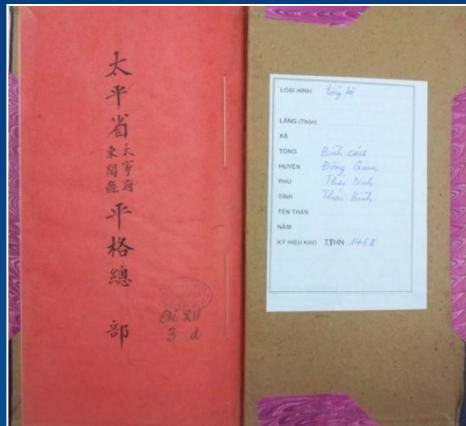 太平省太寧府東關縣平格總部
Qi XII
3 d
LOẠI HÌNH tổng bộ
LÀNG (Thôn)
XÃ
TỔNG Bình Cách
HUYỆN Đông Quan
PHỦ Thái Ninh
TỈNH Thái Bình
TÊN THẦN
NĂM
KÝ HIỆU KHO TTHN 1468